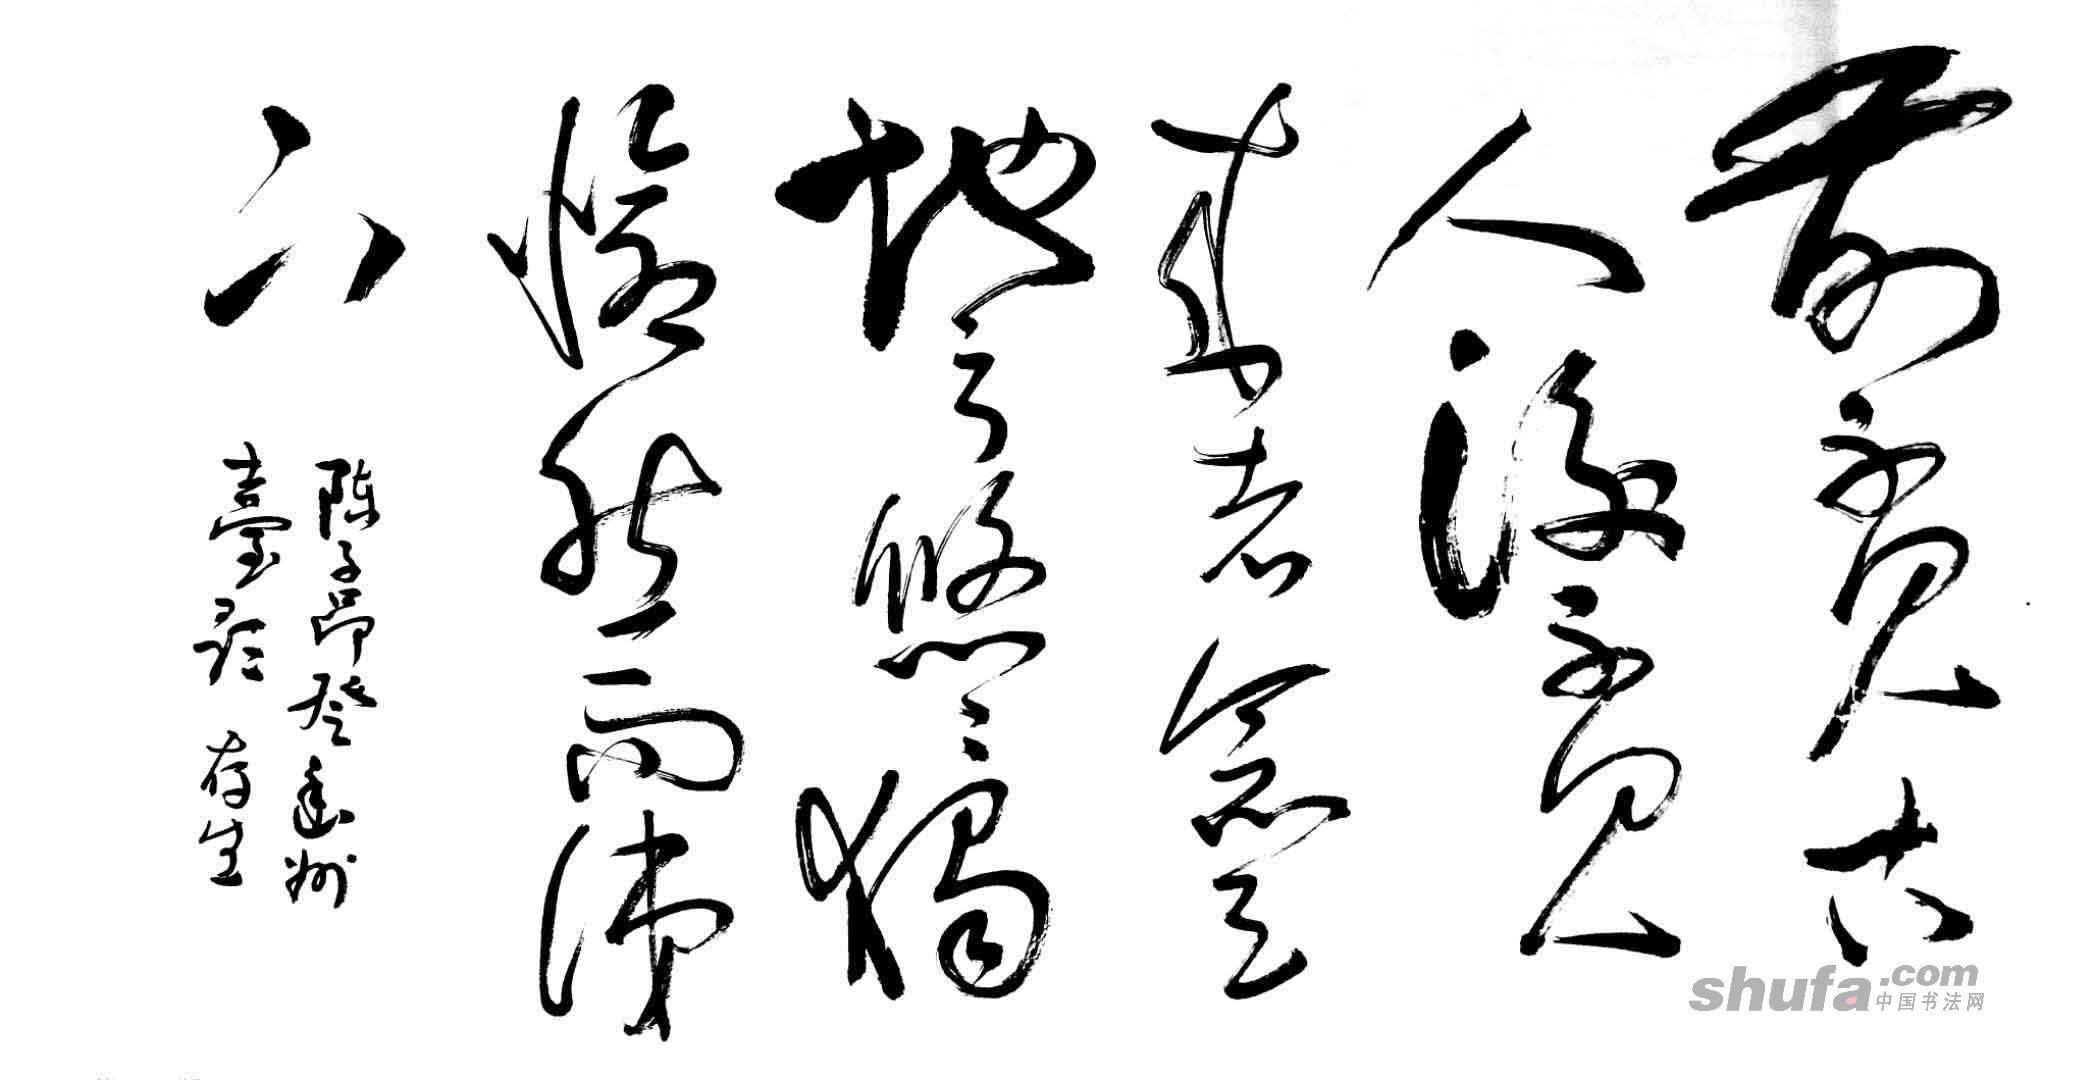 前不見古
人後不見
來者念天
地之悠悠獨
愴然而涕
下
陳子昂登幽州
臺歌 存生
shufa.com
中国书法网